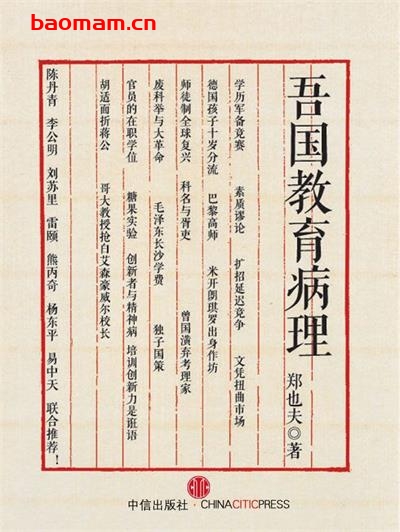 baomam.cn
吾国教育病理
郑也夫◎著
学历军备竞赛 素质谬论 扩招延迟竞争 文凭扭曲市场
德国孩子十岁分流 巴黎高师 米开朗琪罗出身作坊
师徒制全球复兴 科名与胥吏 曾国潢弃考理家
废科举与大革命 毛泽东长沙学费 独子国策
官员的在职学位 糖果实验 创新者与精神病 培训创新力是诳语
胡适面折蒋公 哥大教授抢白艾森豪威尔校长
陈丹青 李公明 刘苏里 雷颐 熊丙奇 杨东平 易中天 联合推荐！
中信出版社·CHINACITICPRESS